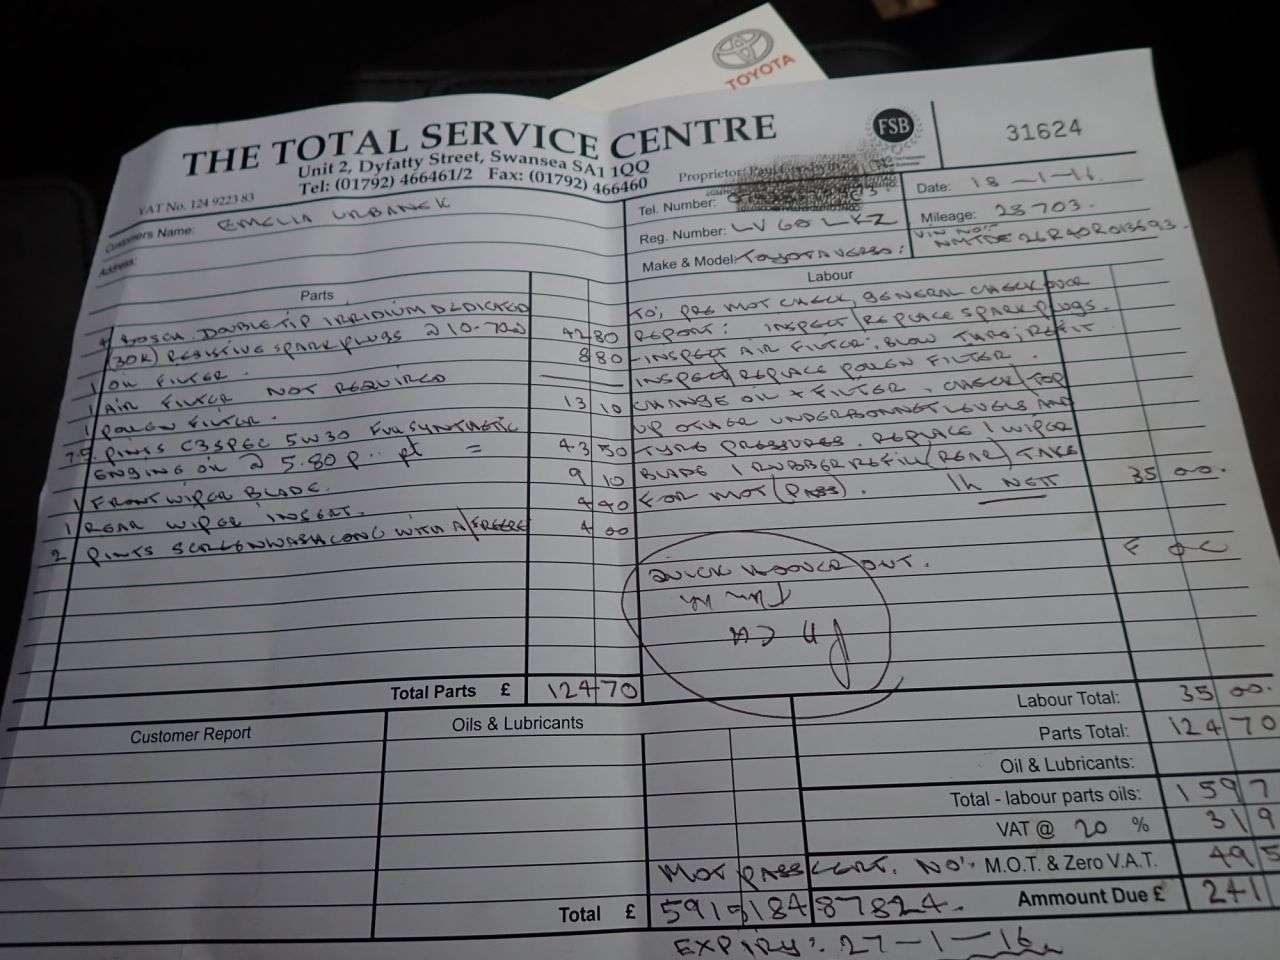 TOYOTA
THE TOTAL SERVICE CENTRE
Unit 2, Dyfatty Street, Swansea SA1 1QQ
Tel: (01792) 466461/2 Fax: (01792) 466460
VAT No. 124 9223 83
FSB
31624
Proprietor:
Customers Name: EMELIA URBANEK
Address:
Tel. Number:
Reg. Number: LV60LKZ
Make & Model: TOYOTA VERSO:
Date: 18-1-16.
Mileage: 28703.
VIN NO:
NMTDE26R40R013693.
Parts
4 BOSCH DOUBLE TIP IRRIDIUM DEDICATED
(30K) RESISTIVE SPARK PLUGS @ 10-70 42 80
1 OIL FILTER. 8 80
1 AIR FILTER NOT REQUIRED
1 POLLEN FILTER. 13 10
7.5 PINTS C3 SPEC 5W30 FULLSYNTHETIC
ENGINE OIL @ 5.80 P.. pt = 43 50
1 FRONT WIPER BLADE. 9 10
1 REAR WIPER INSERT. 4 40
2 PINTS SCREENWASH CONC WITH A/FREEZE 4 00
Total Parts £ 124 70
Labour
TO; PRE MOT CHECK, GENERAL CHECK OVER
REPORT: INSPECT/REPLACE SPARK PLUGS.
-INSPECT AIR FILTER, BLOW THRO; REFIT
INSPECT/REPLACE POLLEN FILTER.
CHANGE OIL + FILTER, CHECK/TOP
UP OTHER UNDERBONNET LEVELS AND
TYRE PRESSURES. REPLACE 1 WIPER
BLADE 1 RUBBER REFILL (REAR) TAKE
FOR MOT (PASS). 1h NETT 35 00.
QUICK HOOVER OUT. F O C
Labour Total: 35 00.
Parts Total: 124 70
Oil & Lubricants:
Total - labour parts oils: 159 7
VAT @ 20 % 31 9
M.O.T. & Zero V.A.T. 49 5
Ammount Due £ 241
Customer Report
Oils & Lubricants
MOT PASS CERT. NO:
Total £ 5919 184 87824.
EXPIRY: 27-1-16